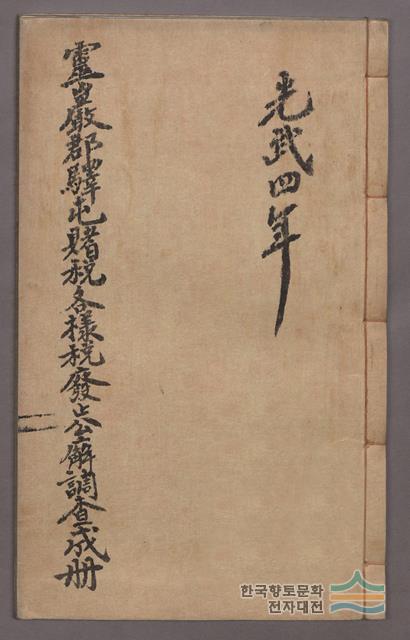 光武四年
靈巖郡驛屯賭稅各樣稅廢止公廨調查成册
한국향토문화
전자대전